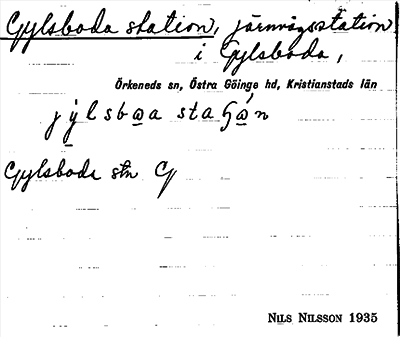 Gylsboda station, järnvägsstation
i Gylsboda,
Örkeneds sn, Östra Göinge hd, Kristianstads län
Gylsboda stn G
NILS NILSSON 1935